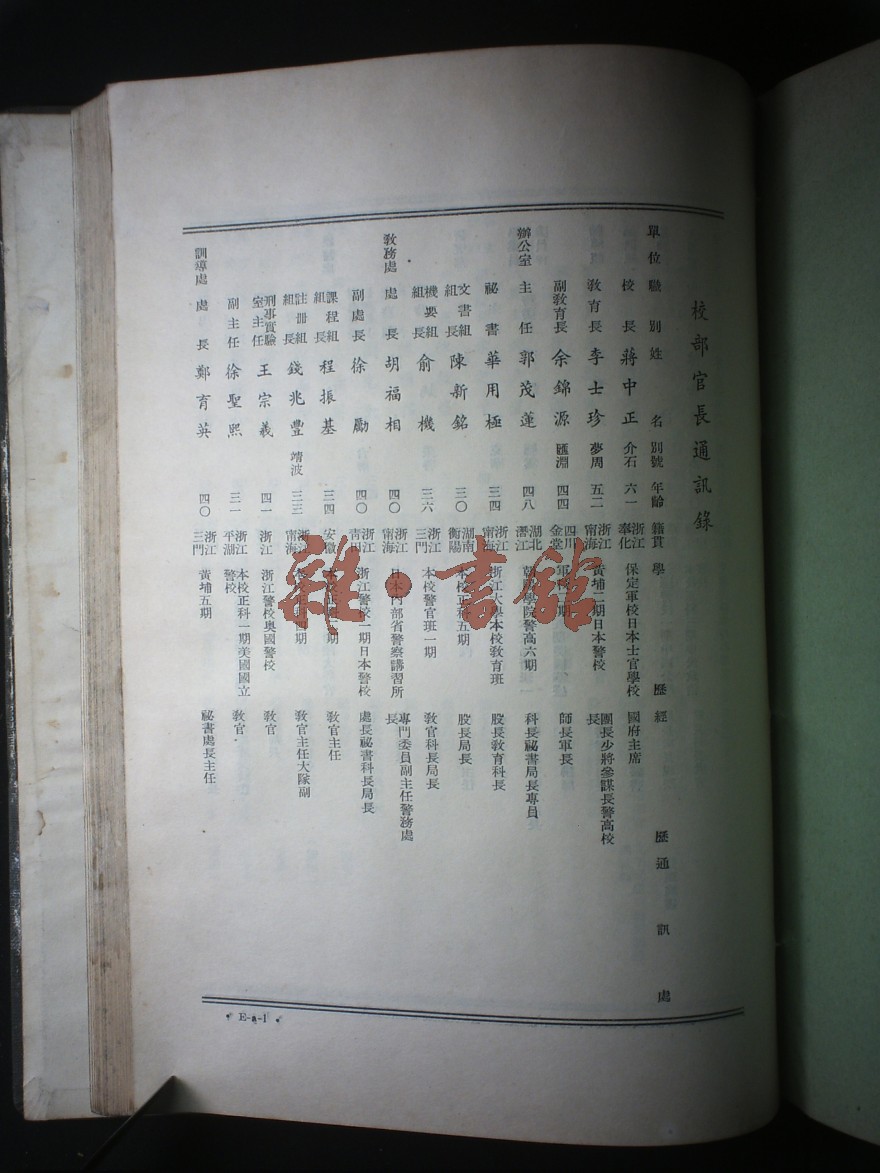 校部官長通訊錄
單位職別姓名別號年齡籍貫學歷經歷通訊處
校長蔣中正介石六一浙江奉化保定軍校日本士官學校國府主席
教育長李士珍夢周五二浙江海黃埔二期日本警校團長少將參謀長警高校長
副教育長余錦源匯淵四四四川金堂軍期師長軍長
辦公室主任郭茂蓮四八湖北潛江學院警高六期科長祕書局長專員
祕書華用極三四浙江海浙江大學本校教育班股長教育科長
文書組組長陳新銘三〇湖南衡陽本校正科五期股長局長
機要組組長俞機三六浙江三門本校警官班一期教官科長局長
教務處處長胡福相四〇浙江海日本內部省警察講習所專門委員副主任警務處長
副處長徐勵四〇浙江青田浙江警校一期日本警校處長祕書科長局長
課程組組長程振基三四安徽本校正期教官主任
註冊組組長錢兆豐靖波三三浙江海期教官主任大隊副
刑事實驗室主任王宗義四一浙江浙江警校奧國警校教官
副主任徐聖熙三一浙江平湖本校正科一期美國國立警校教官
訓導處處長鄭育英四〇浙江三門黃埔五期祕書處長主任
E-a-1
雜·書館